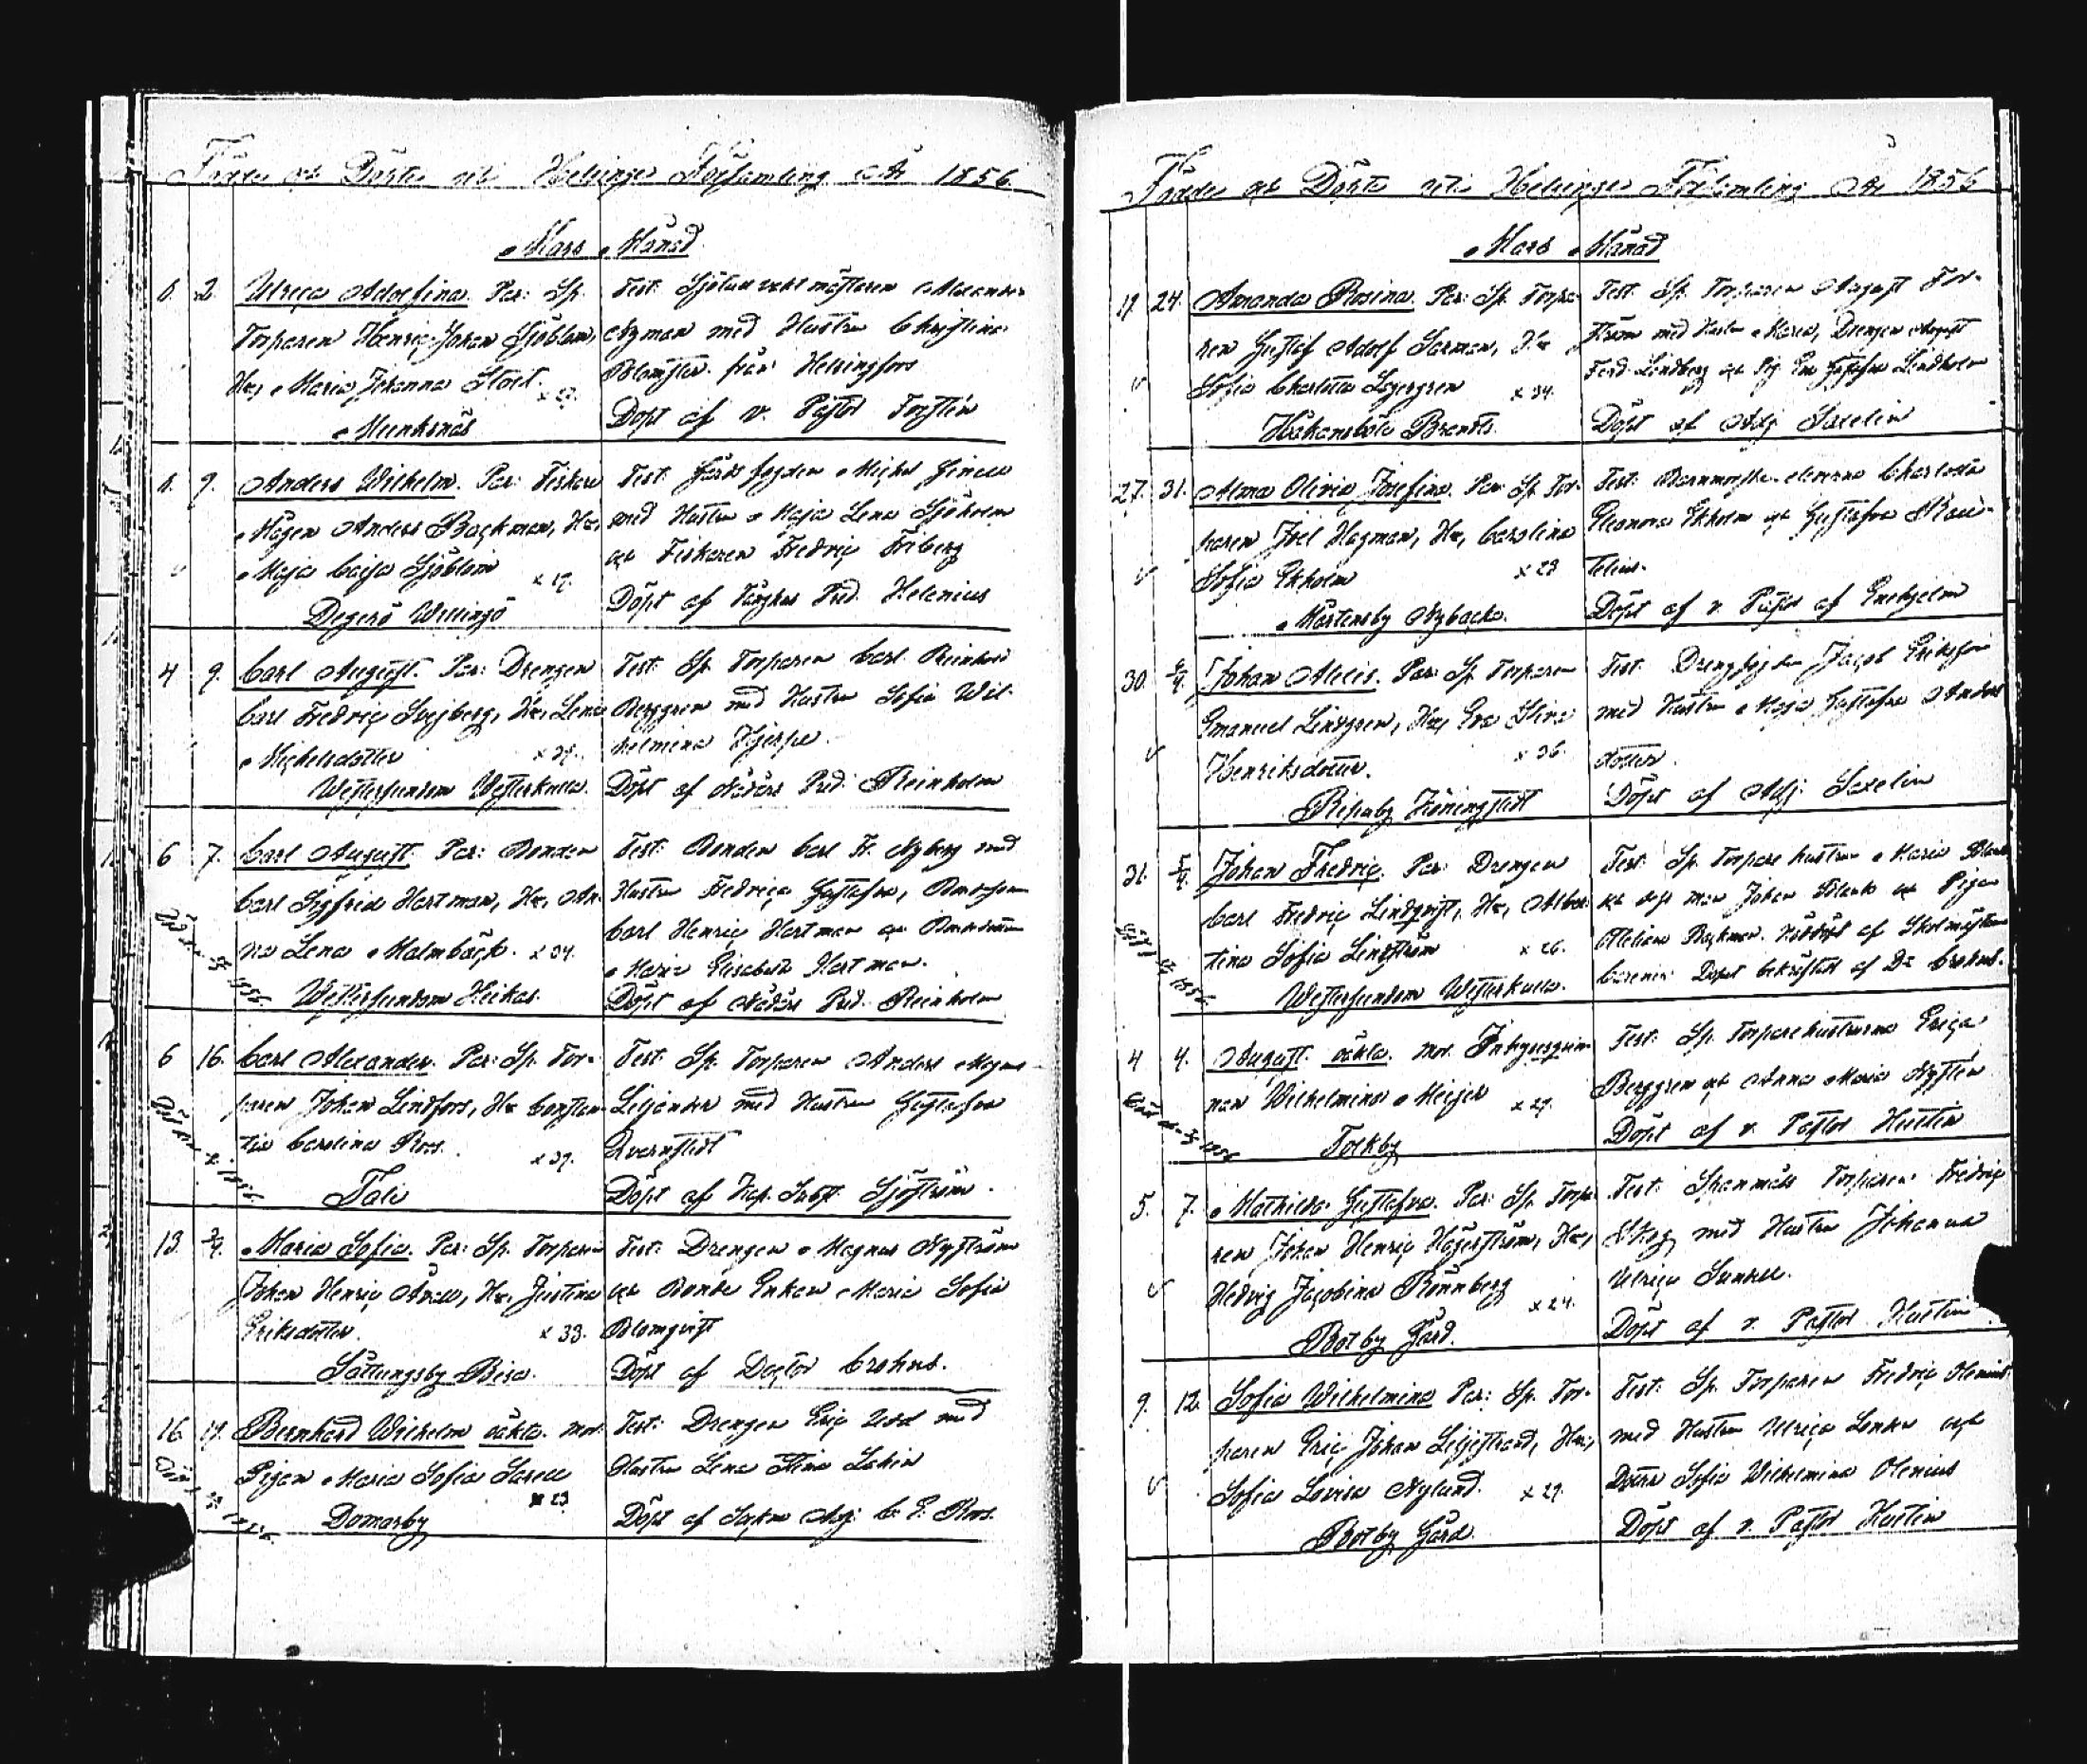 Födde och Döpte uti Helsinge Församling År 1856.
Mars Månad
1. 2. Ulrica Adolfina. Par: Sp.
Torparen Henric Johan Sjöblom,
Hu, Maria Johanna Stort. x 27.
Munksnäs
Test:
Nyman med Hustru Christina
Blomster från Helsingfors
Döpt af v. Pastor Forstén
1. 9. Anders Wilhelm. Par: Fiskare
Mågen Anders Backman, Hu,
Maja Caisa Sjöblom x 29.
Degerö Willingö
Test: Michel
med Hustru Maja Lena Sjöholm
och Fiskaren Fredric Friberg
Döpt af Pred. Helenius
4 9. Carl August. Par: Drengen
Carl Fredric Hu, Lena
Michelsdotter
Westersundom Westerkulla.
Test: Sp. Torparen Carl Reinhold
Berggren med Hustru Sofia Wil-
helmina Hjerpe.
Döpt af Nådårs Pred. Reinholm
6 7. Carl August. Par: Bonden
Carl Sigfrid Hartman, Hu, An-
na Lena Malmbäck. x 34.
Westersundom Heikas.
1856.
Test: Bonden Carl Fr. Nyberg med
Hustru Fredrica Gustafva, Bondesonen
Carl Henric Hartman och
Maria Elisabeth Hartman.
Döpt af Nådårs Pred. Reinholm
6 16. Carl Alexander. Par: Sp. Tor-
paren Johan Lindfors, Hu Constan-
tia Carolina Roos. x 37.
Tali
1856.
Test: Sp. Torparen Anders Magnus
Liljander med Hustru Gustafva
Qvarnstedt
Döpt af Kap. Subst. Sjöström.
13. 3/4. Maria Sofia. Par: Sp. Torparen
Johan Henric Hu, Justina
Eriksdotter. x 33.
Sottungsby Bisa.
Test: Drengen Magnus Nyström
och Bonde Enkan Maria Sofia
Blomqvist
Döpt af Doctor Crohns.
16. 19. Bernhard Wilhelm oäkta. Mod.
Pigan Maria Sofia x 23.
Domarby
1856.
Test: Drengen Eric med
Hustru Lena Stina
Döpt af Adj. C. E. Roos.
Födde och Döpte uti Helsinge Församling År 1856
Mars Månad
19. 24. Amanda Rosina. Par: Sp. Torpa-
ren Gustaf Adolf Hu
Sofia Charlotta Lagergren x 34.
Håkansböle Brands.
Test: Sp. Torparen August For-
ström med Hustru Maria, Drengen August
Ferd. Lindberg och Pig. Eva Gustafva Lindholm
Döpt af Adj. Saxelin
27. 31. Alma Olivia Josefina. Par: Sp. Tor-
paren Joel Hagman, Hu, Carolina
Sofia Ekholm x 23
Mårtensby Nybacka.
Test: Charlotta
Eleonora Ekholm och Gustafva
Döpt af v. Pastor af Enehjelm
30. Johan Alexis. Par: Sp. Torparen
Emanuel Lindgren, Hu, Eva Stina
Henriksdotter. x 36.
Ripuby Köningstedt
Test: Jacob Eriksson
med Hustru Maja Gustafva Anders
dotter.
Döpt af Adj. Saxelin
31. Johan Fredric. Par: Drengen
Carl Fredric Lindqvist, Hu, Alber-
tina Sofia Lindström x 26.
Westersundom Westerkulla.
1856
Test: Sp. Torpare hustrun Maria
och dess man Johan och Pigan
Backman. Nöddöpt af Skolmästaren
Dopet bekräftadt af Dr Crohns.
4 4. August. oäkta. Mod. Inhyseqvin-
nan Wilhelmina Meijer x 29.
Tolkby
1856
Test: Sp. Torparehustrurna Erica
Berggren och Anna Maria Nystén
Döpt af v. Pastor Hustin
5. 7. Mathilda Gustafva. Par: Sp. Torpa-
ren Johan Henric Hägerström, Hu,
Hedvig Jacobina Rönnberg x 24.
Botby Gård.
Test: Torparen Fredric
Skog med Hustru Johanna
Ulrica Sundell.
Döpt af v. Pastor Hustin
9. 12. Sofia Wilhelmina Par: Sp. Tor-
paren Eric Johan Liljestrand, Hu,
Sofia Lovisa Nylund. x 29.
Botby Gård.
Test: Sp. Torparen Fredric Olenius
med Hustru Ulrica och
Sofia Wilhelmina Olenius
Döpt af v. Pastor Hustin